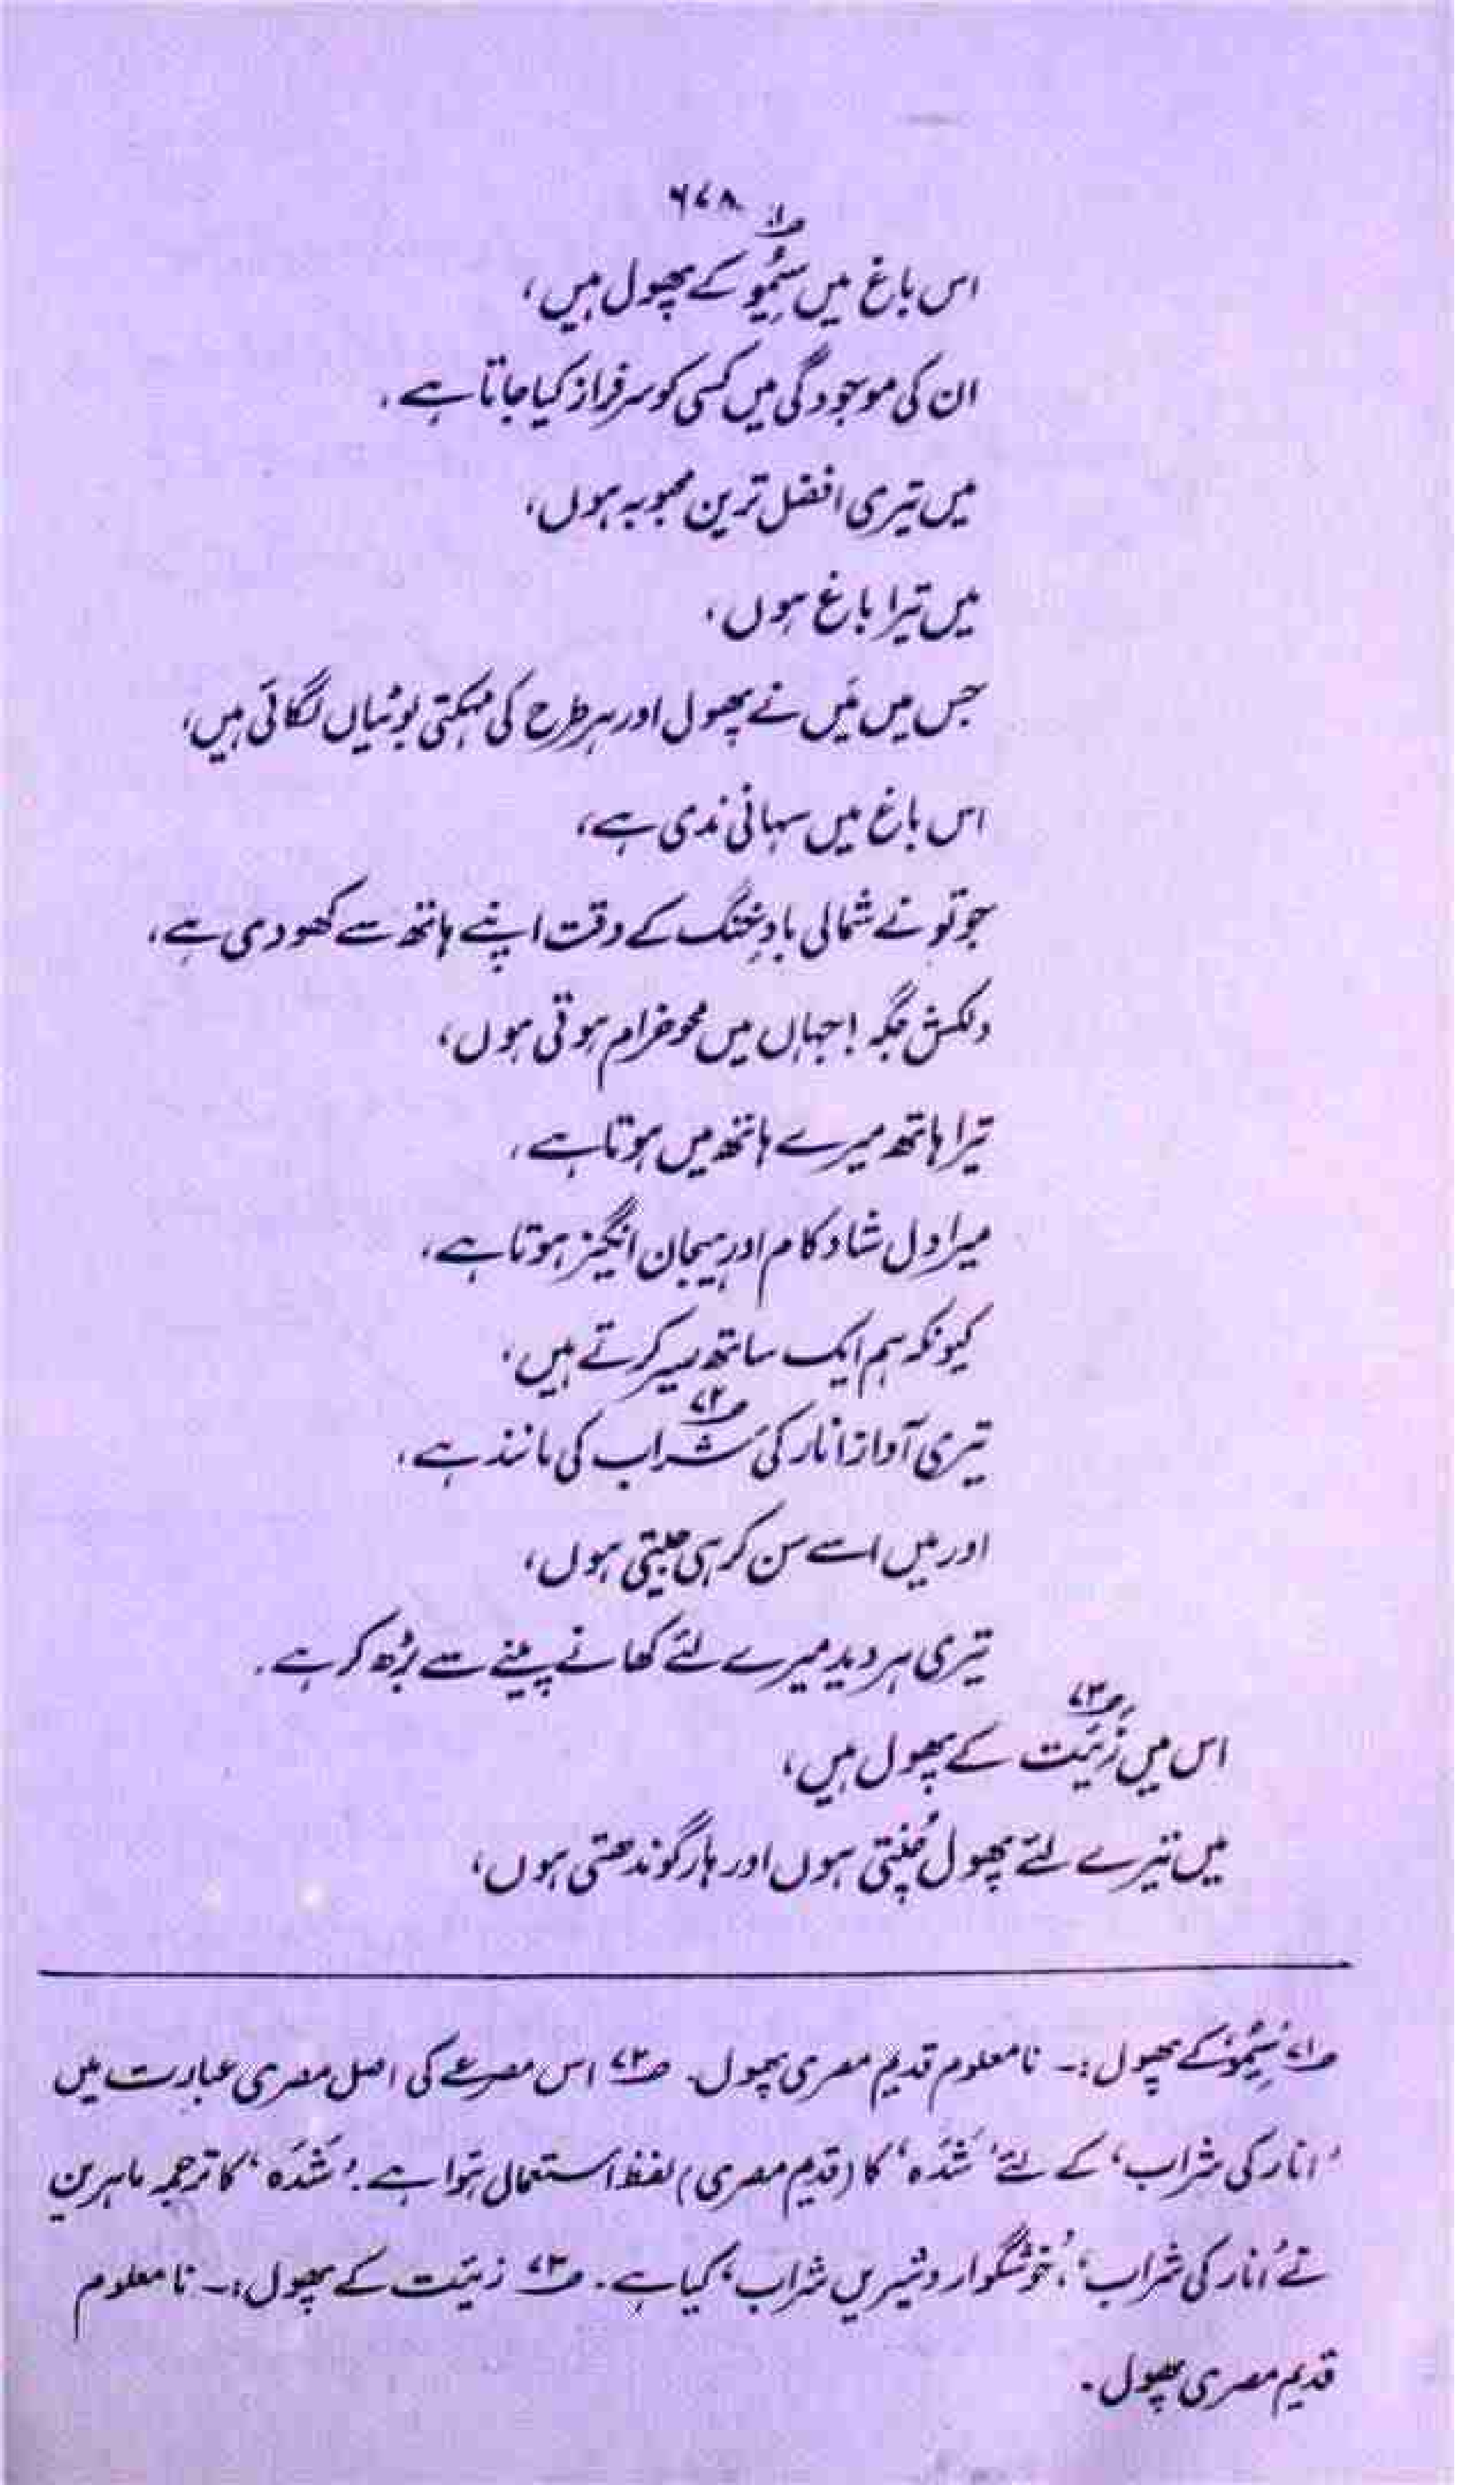 ۶۷۸
اس باغ میں سِیمُو کے پھول ہیں،
ان کی موجودگی میں کسی کو سرفراز کیا جاتا ہے۔
میں تیری افضل ترین محبوبہ ہوں،
میں تیرا باغ ہوں،
جس میں مَیں نے پھول اور ہر طرح کی مہکتی بوٹیاں لگائی ہیں،
اس باغ میں سہانی ندی ہے،
جو تو نے شمالی بادِ خنگ کے وقت اپنے ہاتھ سے کھودی ہے،
دلکش جگہ! جہاں میں محو خرام ہوتی ہوں،
تیرا ہاتھ میرے ہاتھ میں ہوتا ہے،
میرا دل شاد کام اور ہیجان انگیز ہوتا ہے،
کیونکہ ہم ایک ساتھ سیر کرتے ہیں،
تیری آواز انار کی شراب؂۷۲ کی مانند ہے،
اور میں اسے سن کر ہی جیتی ہوں،
تیری ہر دید میرے لئے کھانے پینے سے بڑھ کر ہے۔
اس میں زَیَت؂۷۳ کے پھول ہیں،
میں تیرے لئے پھول چُنتی ہوں اور ہار گوندھتی ہوں،
؂۷۱ سِیمُو کے پھول :۔ نامعلوم قدیم مصری پھول۔ ؂۷۲ اس مصرعے کی اصل مصری عبارت میں
'انار کی شراب' کے لئے 'شَدَہ' کا (قدیم مصری) لفظ استعمال ہوا ہے۔ 'شَدَہ' کا ترجمہ ماہرین
نے 'انار کی شراب'، 'خوشگوار و شیریں شراب' کیا ہے۔ ؂۷۳ زیَت کے پھول :۔ نامعلوم
قدیم مصری پھول۔